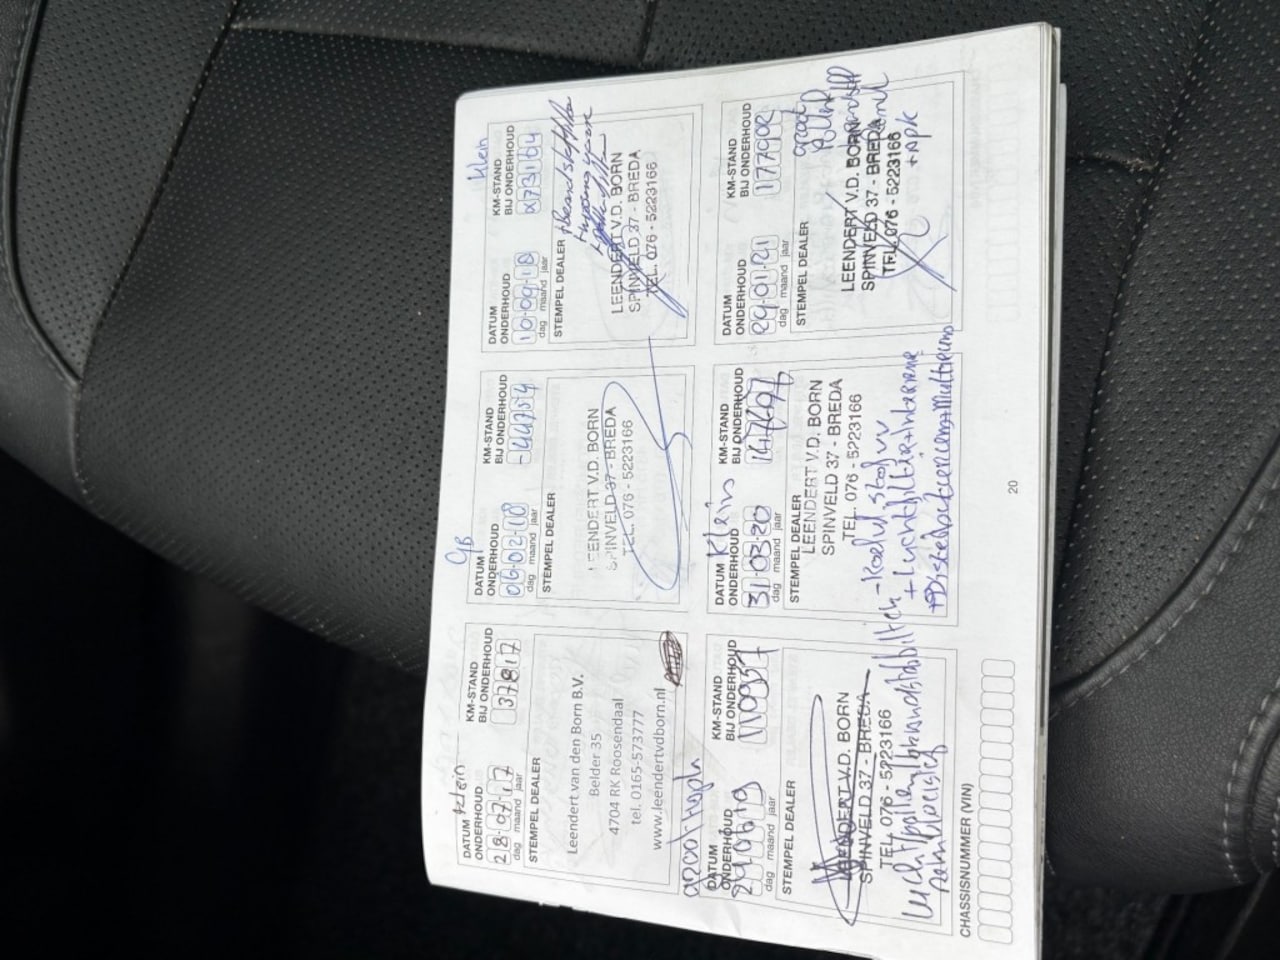 Klein
DATUM
ONDERHOUD
28-07-17
dag maand jaar
KM-STAND
BIJ ONDERHOUD
37817
STEMPEL DEALER
Leendert van den Born B.V.
Belder 35
4704 RK Roosendaal
tel. 0165-573777
www.leendertvdborn.nl
GB
DATUM
ONDERHOUD
06-02-18
dag maand jaar
KM-STAND
BIJ ONDERHOUD
STEMPEL DEALER
LEENDERT V.D. BORN
SPINVELD 37 - BREDA
TEL. 076 - 5223166
Klein
DATUM
ONDERHOUD
10-09-18
dag maand jaar
KM-STAND
BIJ ONDERHOUD
73104
STEMPEL DEALER
LEENDERT V.D. BORN
SPINVELD 37 - BREDA
TEL. 076 - 5223166
groot
DATUM
ONDERHOUD
dag maand jaar
KM-STAND
BIJ ONDERHOUD
110957
STEMPEL DEALER
LEENDERT V.D. BORN
SPINVELD 37 - BREDA
TEL. 076 - 5223166
Klein
DATUM
ONDERHOUD
31-03-20
dag maand jaar
KM-STAND
BIJ ONDERHOUD
147697
STEMPEL DEALER
LEENDERT V.D. BORN
SPINVELD 37 - BREDA
TEL. 076 - 5223166
DATUM
ONDERHOUD
29-01-21
dag maand jaar
KM-STAND
BIJ ONDERHOUD
177902
STEMPEL DEALER
groot
LEENDERT V.D. BORN
SPINVELD 37 - BREDA
TEL. 076 - 5223166
+ Apk
CHASSISNUMMER (VIN)
20